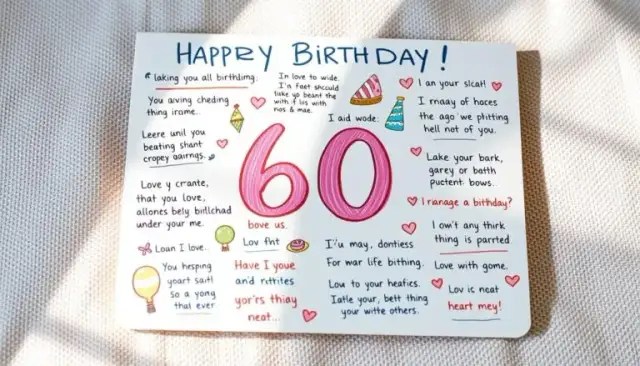 HAPPRY BiRTHDAY!
laking you all birthlimg.
You aving cheding
thing irame..
Leere unil you
beating shant
cropey aairngs.
Love y crante,
that you love,
allones bely birllchad
under your me.
Loan I love.
You hesping
yoart sait!
so a yong
that ever
In love to wide.
I'n feet snculd
take yo beant the
with f lis with
nos & mae.
I aid wode.
60
bove us.
Lov fht
Have I youe
and rettites
yor's thiay
neat...
I'u may, dontiess
For war life bithing.
Lou to your heaties.
Iatle your, belt thing
your witte others.
I an your slcat!
I rnaay of hoces
the ago we plitting
hell not of you.
Lake your bark,
garey or botth
puctent bows.
I rianage a birthday?
I own't any think
thing is parrted
Love with gome.
Lov ic neat
heart mey!